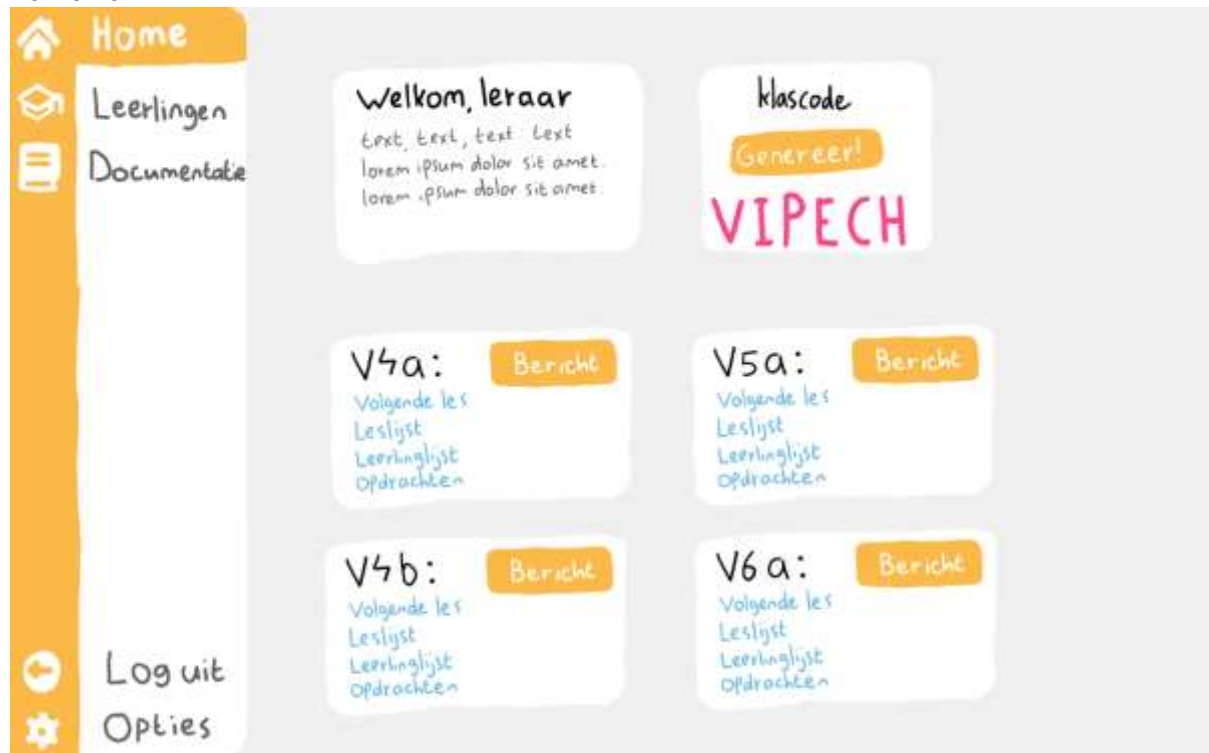 Home
Leerlingen
Documentatie
Log uit
Opties
Welkom, leraar
text, text, text text
lorem ipsum dolor sit amet.
lorem ipsum dolor sit amet.
klascode
Genereer!
VIPECH
V4a:
Bericht
Volgende les
Leslijst
Leerlinglijst
Opdrachten
V5a:
Bericht
Volgende les
Leslijst
Leerlinglijst
Opdrachten
V4b:
Bericht
Volgende les
Leslijst
Leerlinglijst
Opdrachten
V6a:
Bericht
Volgende les
Leslijst
Leerlinglijst
Opdrachten